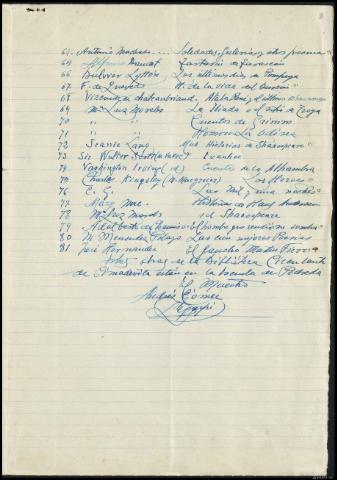 64. Antonio Machado.... Soledades, Galerias, y otros poemas
65 Alfonso Daudet Tartarin de Tarascón
66 Bulwer Lytton, Los últimos días de Pompeya
67 F. de Quevedo H. de la vida del Buscón
68 Vizconde de Chateaubriand, Atala, René, el último
69 Mª Luz Morales La Iliada o el sitio de Troya
70 " " Cuentos de Grimm
71 " " Homero La Odisea
72 Jeanie Lang Mas Historias de Shakespeare
73 Sir Walter Scott Ivanhoe
74 Washington Irving Cuentos de la Alhambra
75 Charles Kingsley Los Heroes
76 C. G. Las mil y una noches
77 Mary Historias de Hans Andersen
78 Mª Luz Morales id Shakespeare
79 Adalberto de Chamisso El hombre que vendió su sombra
80 M Menendez Pelayo Las cien mejores Poesias
81 José Hernandez El Gaucho Martin Fierro
obras de la Biblioteca Circulante
de están en la Escuela de
El Maestro
Andrés Gómez